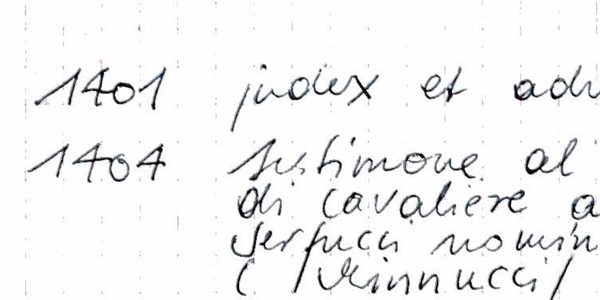 1401 judex et adv
1404 testimone al
di cavaliere a
Serfucci nomin
(